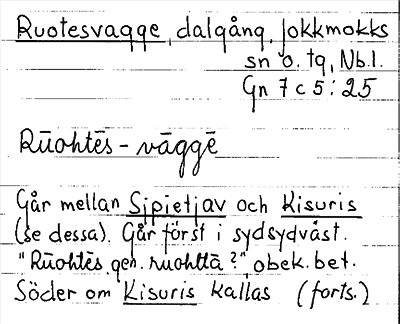 Ruotesvagge, dalgång, Jokkmokks
sn o. tg, Nb.l.
Gn 7 c 5: 25
Rūohtēs-vāggē
Går mellan Sjpietjav och Kisuris
(se dessa). Går först i sydsydväst.
"Rūohtēs, gen. ruohttā?", obek. bet.
Söder om Kisuris kallas (forts.)